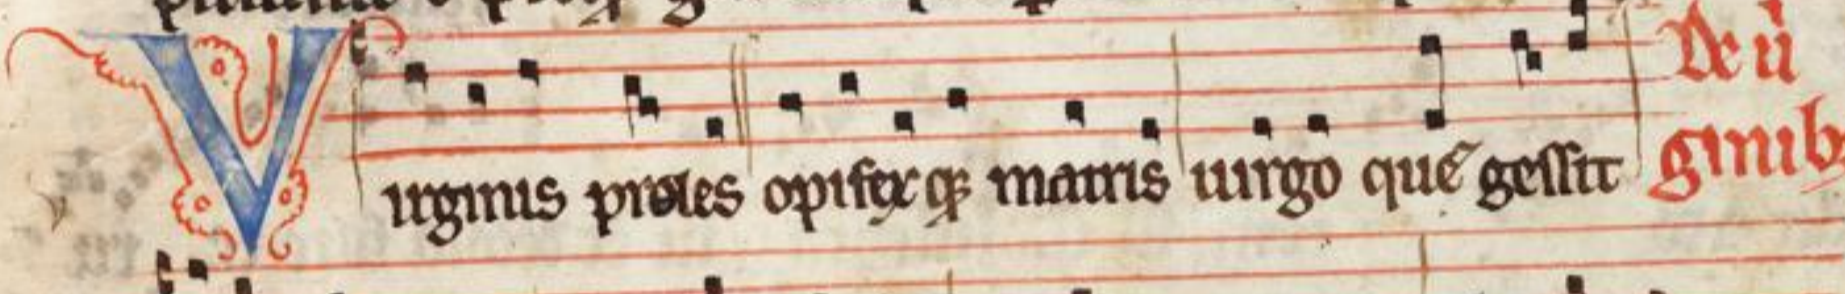 Virginis proles opifexqꝫ matris uirgo quē gessit
De uir
ginibꝫ